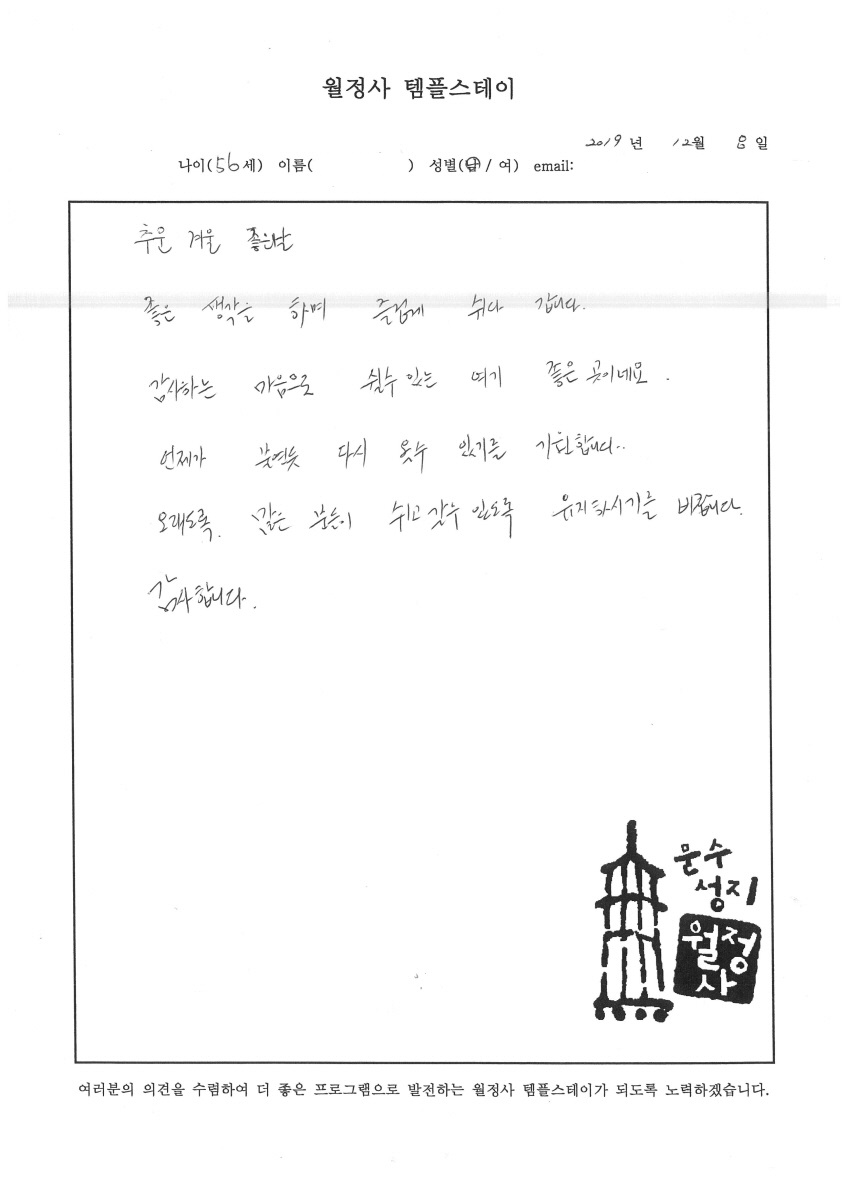 월정사 템플스테이
2019 년 12월 8 일
나이(56세) 이름( ) 성별(남 / 여) email:
추운 겨울 좋은날
좋은 생각을 하며 즐겁게 쉬다 갑니다.
감사하는 마음으로 쉴수 있는 여기 좋은 곳이네요.
언제가 다시 올수 있기를 기원합니다..
오래도록. 많은 분들이 쉬고 갈수 있도록 유지하시기를 바랍니다.
감사합니다.
문수
성지
월정
사
여러분의 의견을 수렴하여 더 좋은 프로그램으로 발전하는 월정사 템플스테이가 되도록 노력하겠습니다.